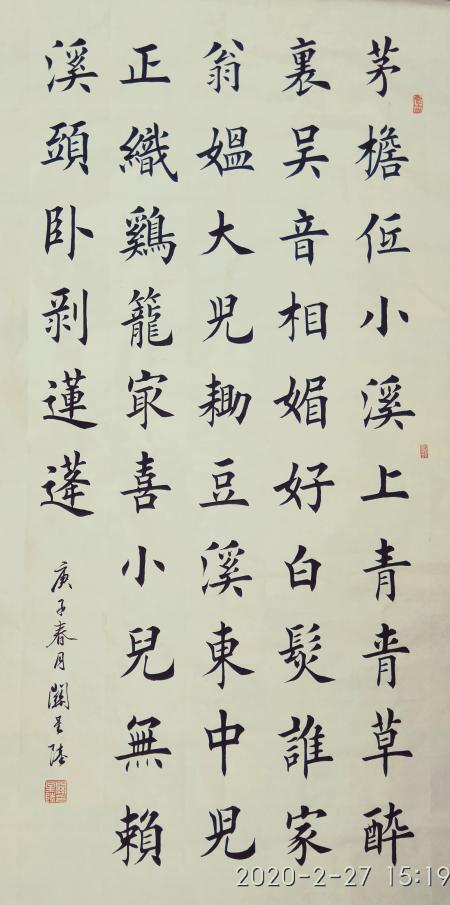 茅檐低小溪上青青草醉
裏吴音相媚好白髮誰家
翁媼大兒鋤豆溪東中兒
正織鷄籠冣喜小兒無賴
溪頭卧剥蓮蓬
庚子春月
2020-2-27 15:19